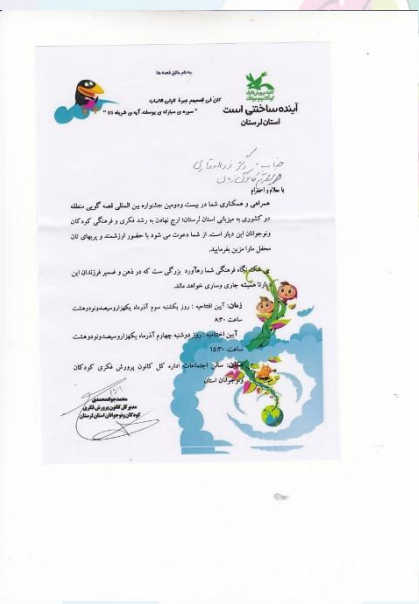 به نام خالق قصه ها
کانون پرورش فکری
کودکان و نوجوانان
لقد کان فی قصصهم عبرة لاولی الالباب
" سوره ی مبارکه ی یوسف، آیه ی شریفه ۱۱۱ "
آینده ساختنی است
استان لرستان
جناب
با سلام و احترام
همراهی و همکاری شما در بیست ودومین جشنواره بین المللی قصه گویی منطقه
دو کشوری به میزبانی استان لرستان؛ ارج نهادن به رشد فکری و فرهنگی کودکان
ونوجوانان این دیار است. از شما دعوت می شود با حضور ارزشمند و پربهای تان
محفل مارا مزین بفرمایید.
بی شک نگاه فرهنگی شما رهآورد بزرگی ست که در ذهن و ضمیر فرزندان این
دیارتا همیشه جاری وساری خواهد ماند.
زمان: آیین افتتاحیه : روز یکشنبه سوم آذرماه یکهزاروسیصدونودوهشت
ساعت ۸:۳۰
آیین اختتامیه :روز دوشنبه چهارم آذرماه یکهزاروسیصدونودوهشت
ساعت ۱۵:۳۰
مکان: سالن اجتماعات اداره کل کانون پرورش فکری کودکان
ونوجوانان استان
محمدجوادمحمدی
مدیرکل کانون پرورش فکری
کودکان ونوجوانان استان لرستان